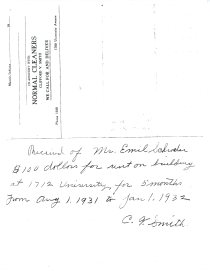 NORMAL CLEANERS
CLIFFORD V. SMITH
WE CALL FOR AND DELIVER
Received of Mr. Emil Schroder
$100 dollars for rent on building
at 1712 University for 5 months
From Aug 1. 1931 to Jan 1. 1932
C. V. Smith